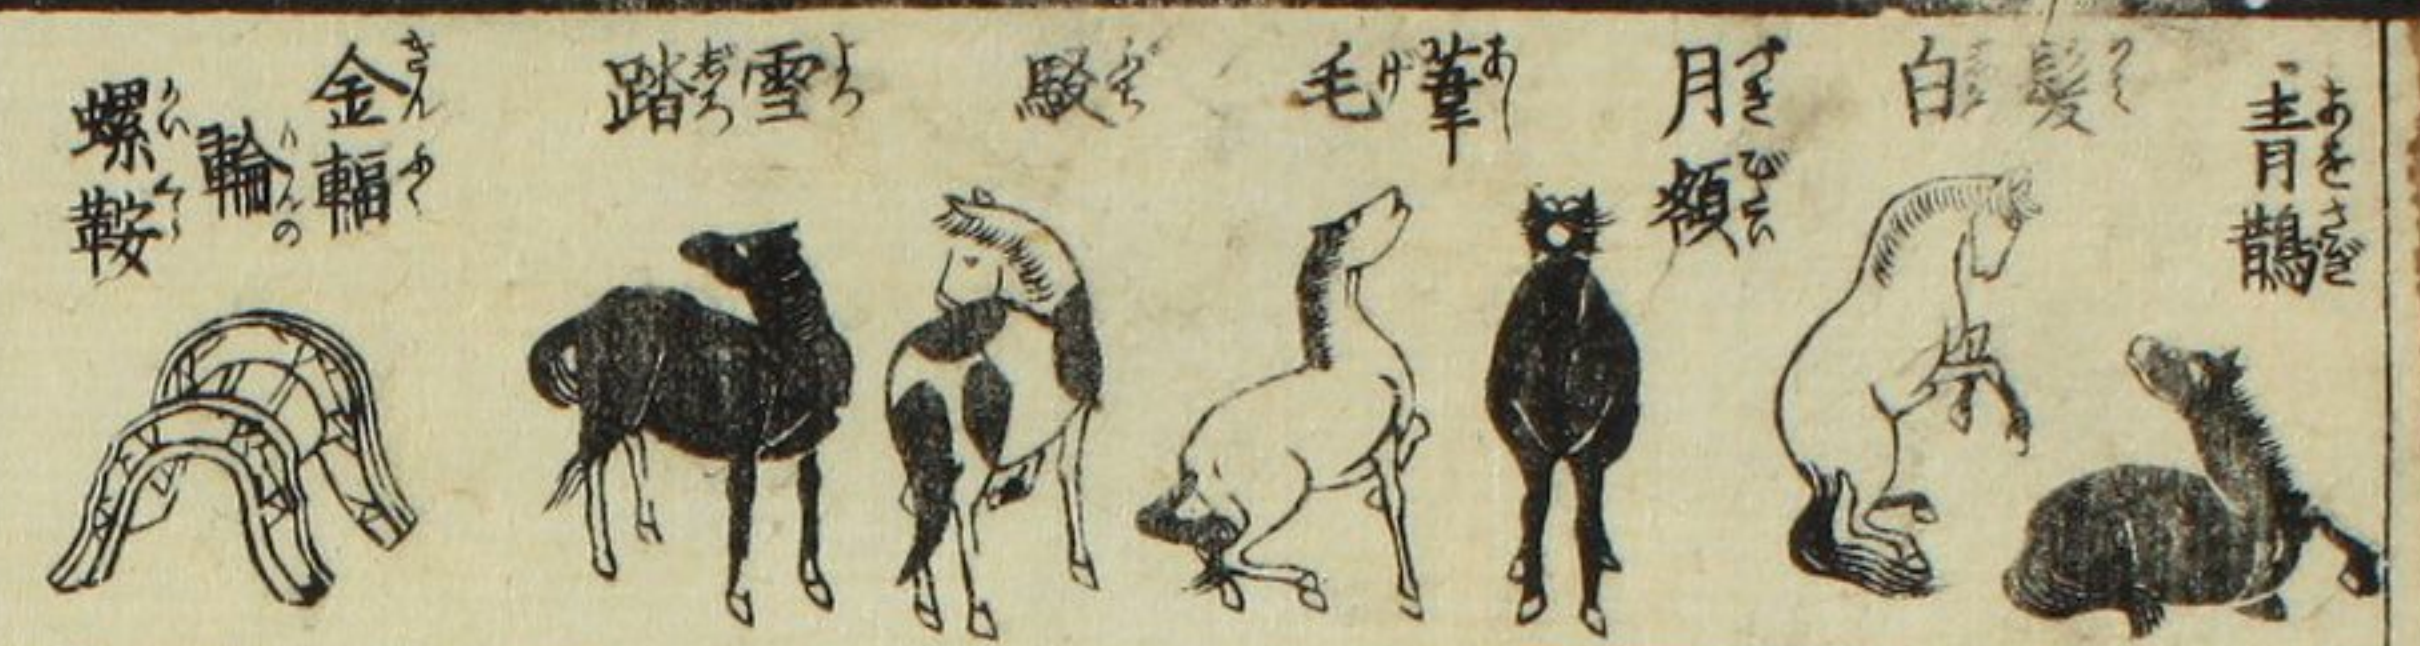 青鵲
あをさぎ
髪白
月額
つきびたい
葦毛
あしげ
駁
ぶち
雪踏
よつぢろ
金輻
きんふく
輪
りんの
螺鞍
かいくら